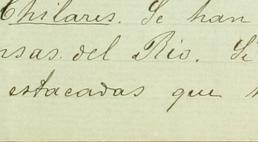 Chilares. Se han
nsas del Rio. Si
estacadas que